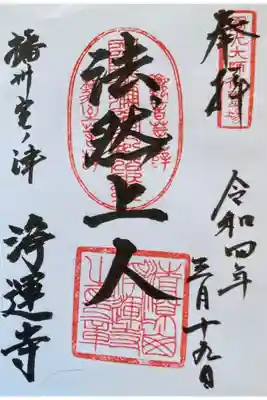 奉拝
令和四年
三月十九日
法然上人
播州室ノ津
浄運寺